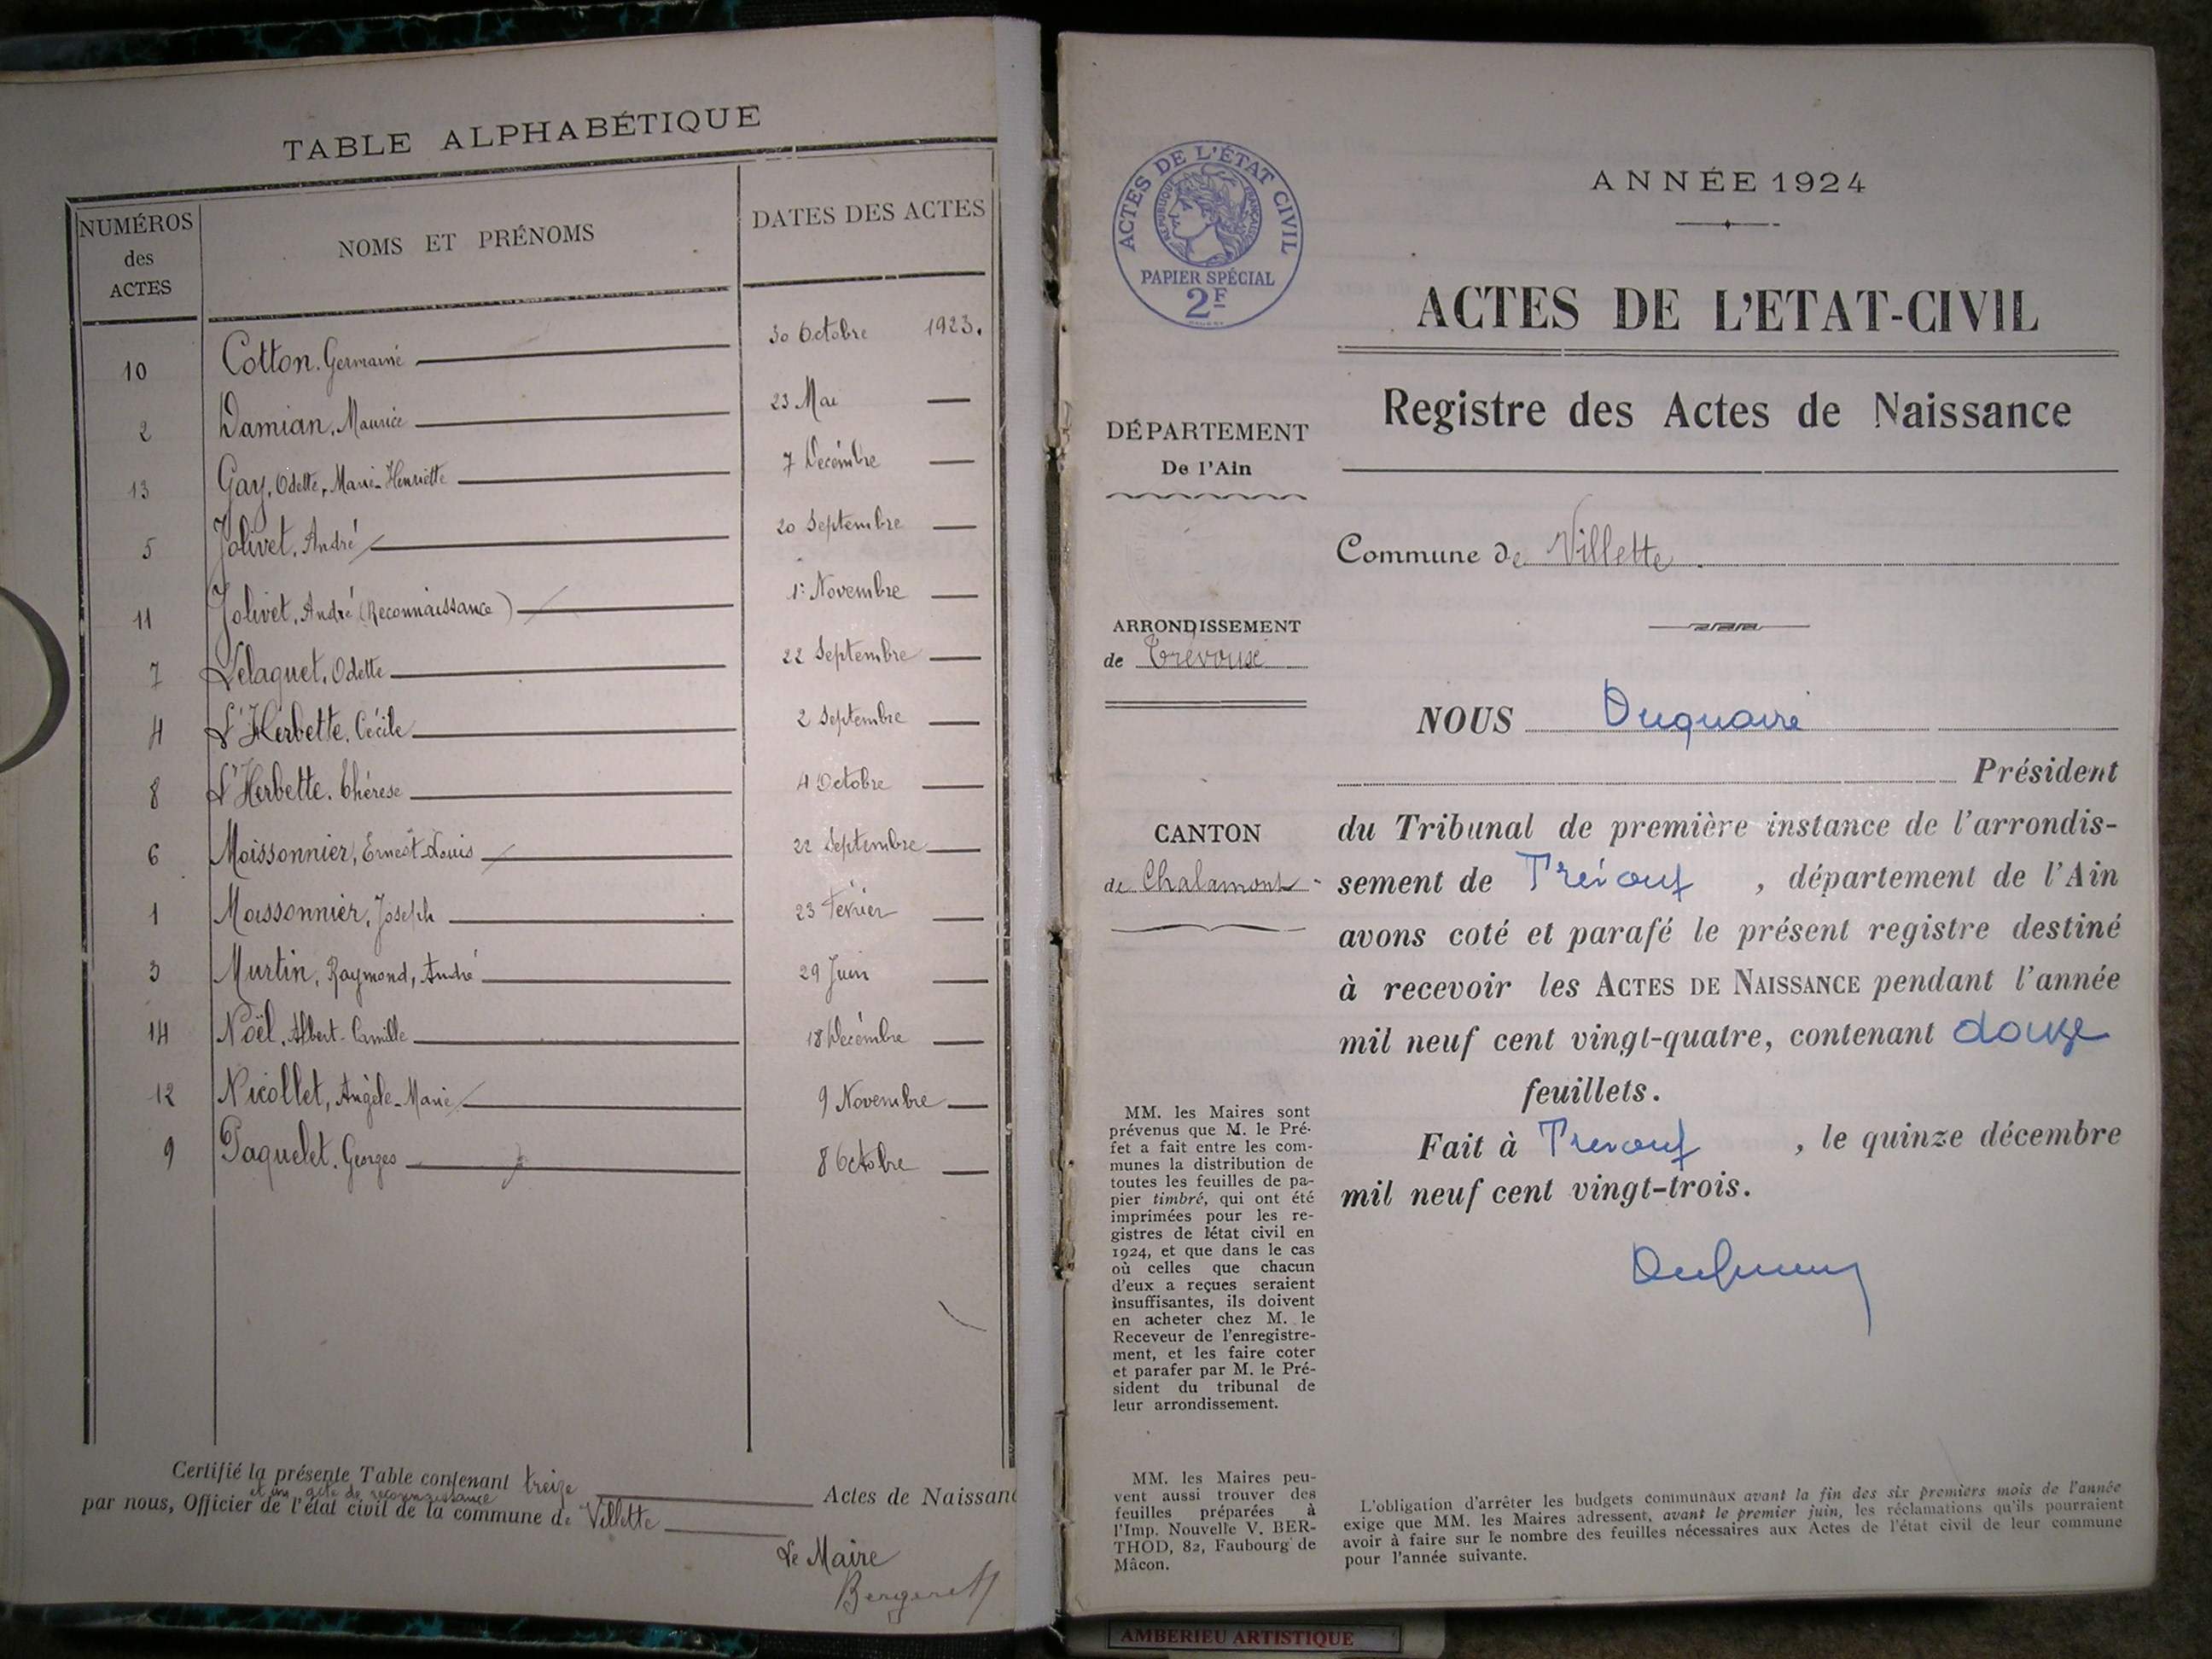 TABLE ALPHABÉTIQUE
NUMÉROS des ACTES NOMS ET PRÉNOMS DATES DES ACTES
10 Cotton, Germaine 30 Octobre 1923.
2 Damian, Maurice 23 Mai —
13 Gay, Odette, Marie-Henriette 7 Décembre —
5 Jolivet, André 20 Septembre —
11 Jolivet, André (Reconnaissance) 1er Novembre —
7 Lelaquet, Odette 22 Septembre —
4 L'Herbette, Cécile 2 Septembre —
8 L'Herbette, Thérese 4 Octobre —
6 Moissonnier, Ernest-Louis 22 Septembre —
1 Moissonnier, Joseph 23 Février —
3 Murtin, Raymond, André 29 Juin —
14 Noël, Albert-Camille 18 Décembre —
12 Nicollet, Angèle-Marie 9 Novembre —
9 Paquelet, Georges 8 Octobre —
Certifié la présente Table contenant treize Actes de Naissanc
et un acte de reconnaissance
par nous, Officier de l'état civil de la commune de Villette
Le Maire
ACTES DE L'ÉTAT CIVIL
RÉPUBLIQUE FRANÇAISE
PAPIER SPÉCIAL
2F
DÉPARTEMENT
De l'Ain
ARRONDISSEMENT
de Trévoux
CANTON
de Chalamont
MM. les Maires sont
prévenus que M. le Pré-
fet a fait entre les com-
munes la distribution de
toutes les feuilles de pa-
pier timbré, qui ont été
imprimées pour les re-
gistres de l'état civil en
1924, et que dans le cas
où celles que chacun
d'eux a reçues seraient
insuffisantes, ils doivent
en acheter chez M. le
Receveur de l'enregistre-
ment, et les faire coter
et parafer par M. le Pré-
sident du tribunal de
leur arrondissement.
MM. les Maires peu-
vent aussi trouver des
feuilles préparées à
l'Imp. Nouvelle V. BER-
THOD, 82, Faubourg de
Mâcon.
ANNÉE 1924
ACTES DE L'ETAT-CIVIL
Registre des Actes de Naissance
Commune de Villette
NOUS Duquaire
Président
du Tribunal de première instance de l'arrondis-
sement de Trévoux, département de l'Ain
avons coté et parafé le présent registre destiné
à recevoir les ACTES DE NAISSANCE pendant l'année
mil neuf cent vingt-quatre, contenant douze
feuillets.
Fait à Trevoux, le quinze décembre
mil neuf cent vingt-trois.
L'obligation d'arrêter les budgets communaux avant la fin des six premiers mois de l'année
exige que MM. les Maires adressent, avant le premier juin, les réclamations qu'ils pourraient
avoir à faire sur le nombre des feuilles nécessaires aux Actes de l'état civil de leur commune
pour l'année suivante.
AMBERIEU ARTISTIQUE